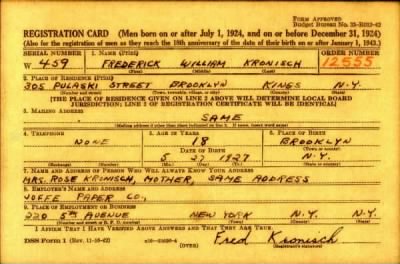 FORM APPROVED
REGISTRATION CARD (Men born on or after July 1, 1924, and on or before December 31, 1924)
(Also for the registration of men as they reach the 18th anniversary of the date of their birth on or after January 1, 1943.)
SERIAL NUMBER 1. NAME (Print) ORDER NUMBER
W 459 FREDERICK WILLIAM KRONISCH 12555
(First) (Middle) (Last)
2. PLACE OF RESIDENCE (Print)
305 PULASKI STREET BROOKLYN KINGS N.Y.
(Number and street) (Town, township, village, or city) (County) (State)
[THE PLACE OF RESIDENCE GIVEN ON LINE 2 ABOVE WILL DETERMINE LOCAL BOARD
JURISDICTION; LINE 2 OF REGISTRATION CERTIFICATE WILL BE IDENTICAL]
3. MAILING ADDRESS
SAME
4. TELEPHONE 5. AGE IN YEARS 6. PLACE OF BIRTH
NONE 18 BROOKLYN
DATE OF BIRTH
5 27 1927 N.Y.
7. NAME AND ADDRESS OF PERSON WHO WILL ALWAYS KNOW YOUR ADDRESS
MRS. ROSE KRONISCH, MOTHER, SAME ADDRESS
8. EMPLOYER'S NAME AND ADDRESS
JOFFE PAPER CO.,
9. PLACE OF EMPLOYMENT OR BUSINESS
220 5TH AVENUE NEW YORK N.Y. N.Y.
I AFFIRM THAT I HAVE VERIFIED ABOVE ANSWERS AND THAT THEY ARE TRUE.
DSS Form 1 (OVER) Fred Kronisch
(Registrant's signature)